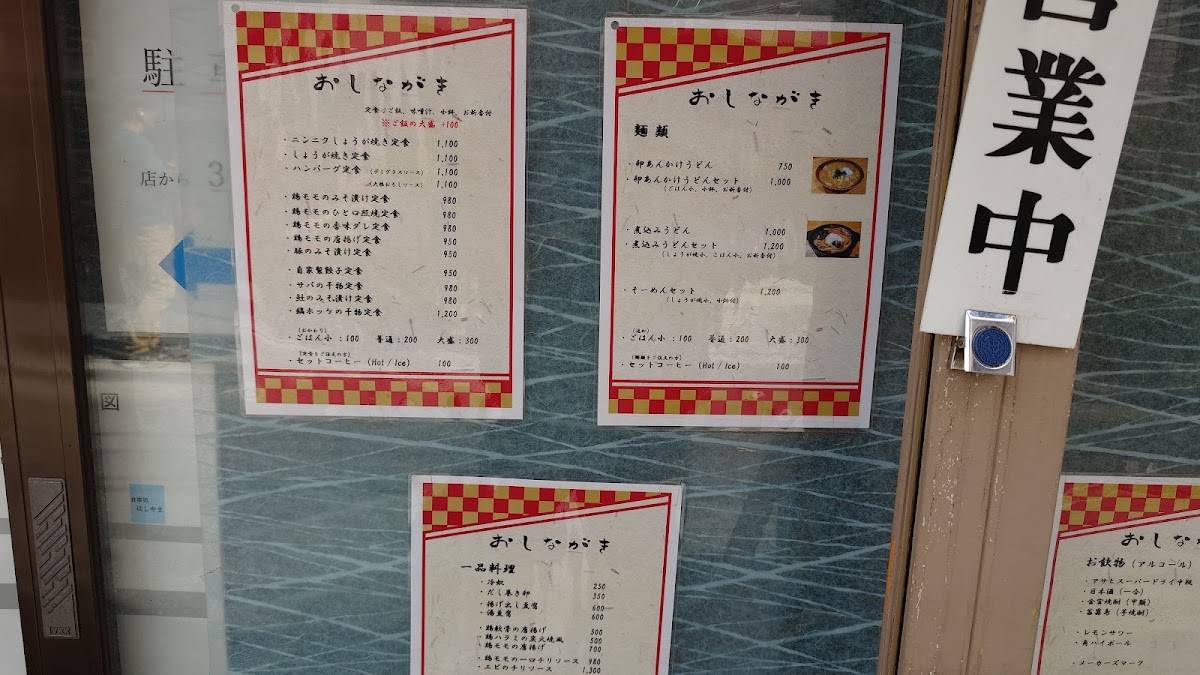 おしながき
定食:ご飯、味噌汁、小鉢、お新香付
※ご飯の大盛 +100
・ニンニクしょうが焼き定食 1,100
・しょうが焼き定食 1,100
・ハンバーグ定食 (デミグラスソース) 1,100
(大根おろしソース) 1,100
・鶏モモのみそ漬け定食 980
・鶏モモのひと口照焼定食 980
・鶏モモの香味ダレ定食 980
・鶏モモの唐揚げ定食 950
・豚のみそ漬け定食 950
・自家製餃子定食 950
・サバの干物定食 980
・鮭のみそ漬け定食 980
・縞ホッケの干物定食 1,200
(おかわり)
・ごはん小:100 普通:200 大盛:300
(定食をご注文の方)
・セットコーヒー (Hot / Ice) 100
おしながき
麺類
・卵あんかけうどん 750
・卵あんかけうどんセット 1,000
(ごはん小、小鉢、お新香付)
・煮込みうどん 1,000
・煮込みうどんセット 1,200
(しょうが焼小、ごはん小、お新香付)
・そーめんセット 1,200
(しょうが焼小、小鉢付)
(追加)
・ごはん小:100 普通:200 大盛:300
(麺類をご注文の方)
・セットコーヒー (Hot / Ice) 100
おしながき
一品料理
・冷奴 250
・だし巻き卵 350
・揚げ出し豆腐 600
・湯豆腐 600
・鶏軟骨の唐揚げ 300
・鶏ハラミの炭火焼風 500
・鶏モモの唐揚げ 700
・鶏モモの一口チリソース 980
・エビのチリソース 1,300
おしなが
お飲物 (アルコール)
・アサヒスーパードライ中瓶
・日本酒 (一合)
・金宮焼酎 (甲類)
・富乃宝 (芋焼酎)
・レモンサワー
・角ハイボール
・メーカーズマーク
業中
駐 車
店から 3
図
食事処
はしやま